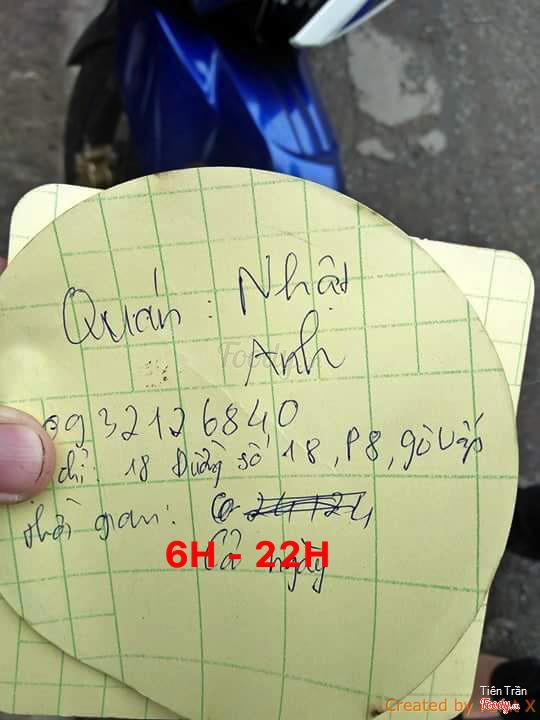 Quán : Nhật
Anh
0932126840
đ/c: 18 Đường số 18, P8, gò vấp
thời gian:
6H - 22H
Cả ngày
Foody
Tiên Trần
Foody.vn
Created by X